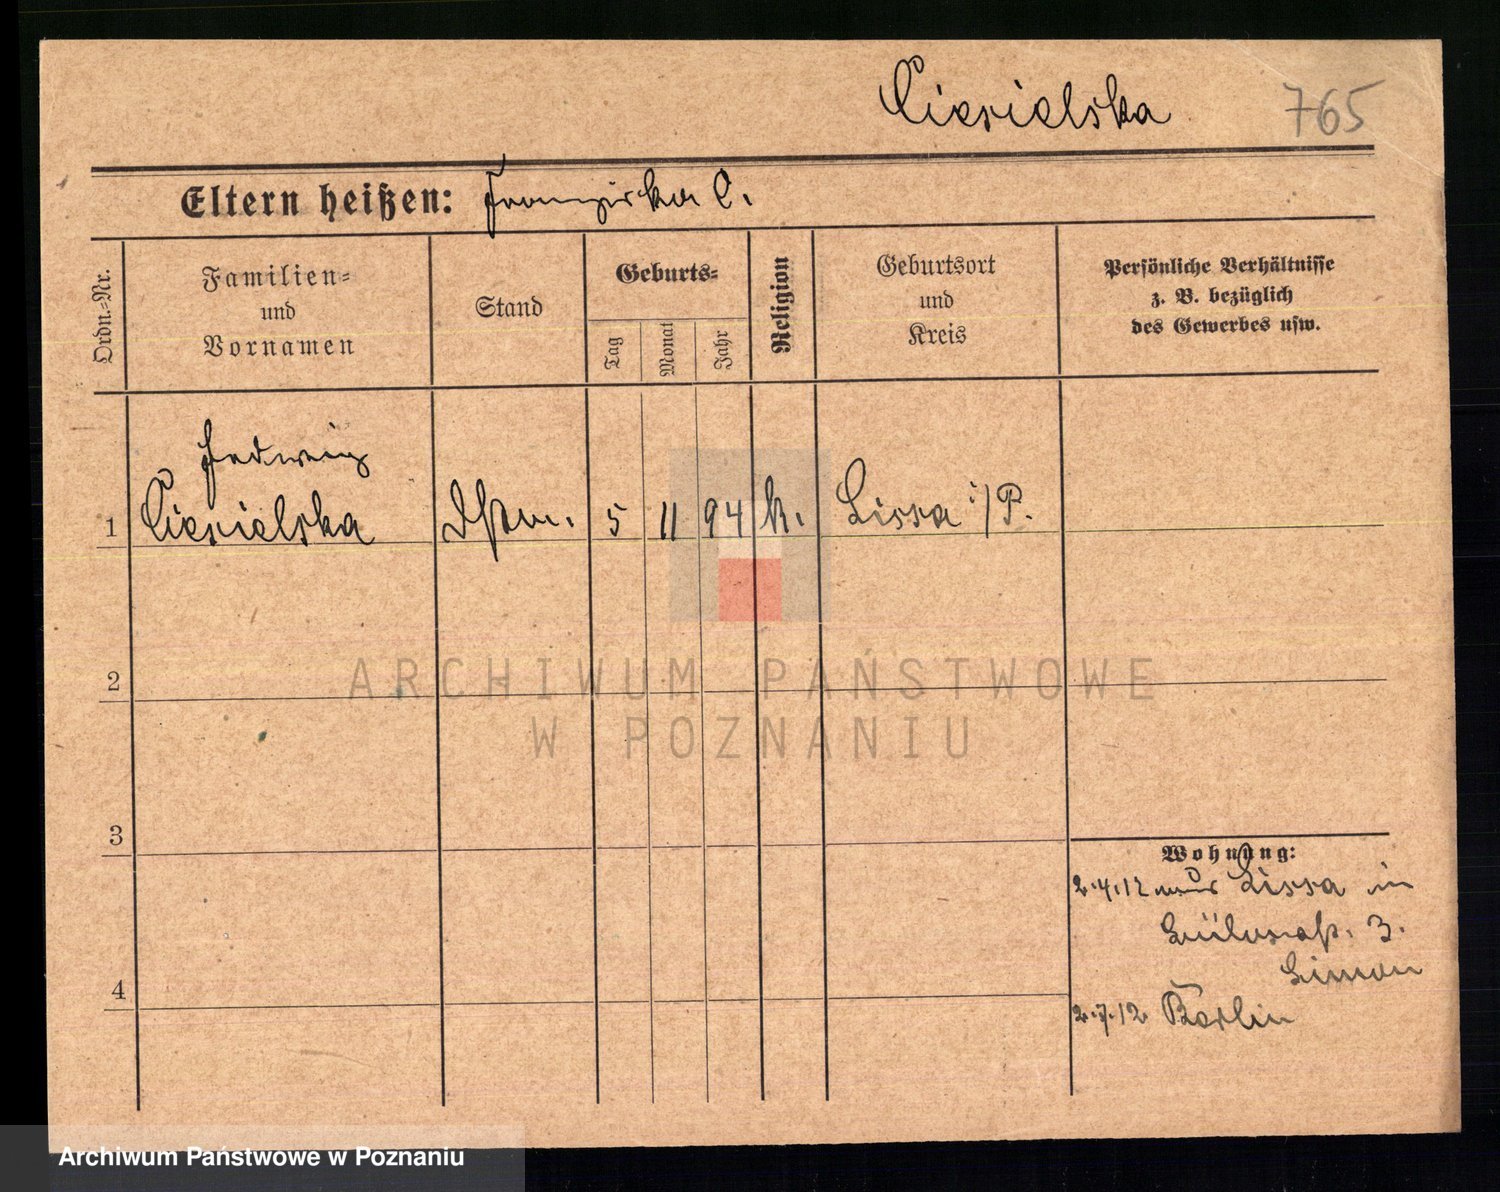 Ciesielska 765
Eltern heißen: Franziska C.
Ordn.=Nr.
Familien=
und
Vornamen
Stand
Geburts=
Tag
Monat
Jahr
Religion
Geburtsort
und
Kreis
Persönliche Verhältnisse
z. B. bezüglich
des Gewerbes usw.
Hedwig
1 Ciesielska 5 11 94 k. Lissa i/P.
2
ARCHIWUM PAŃSTWOWE
W POZNANIU
3
Wohnung:
2.4.12 aus Lissa in
3.
Simon
4
2.7.12 Berlin
Archiwum Państwowe w Poznaniu